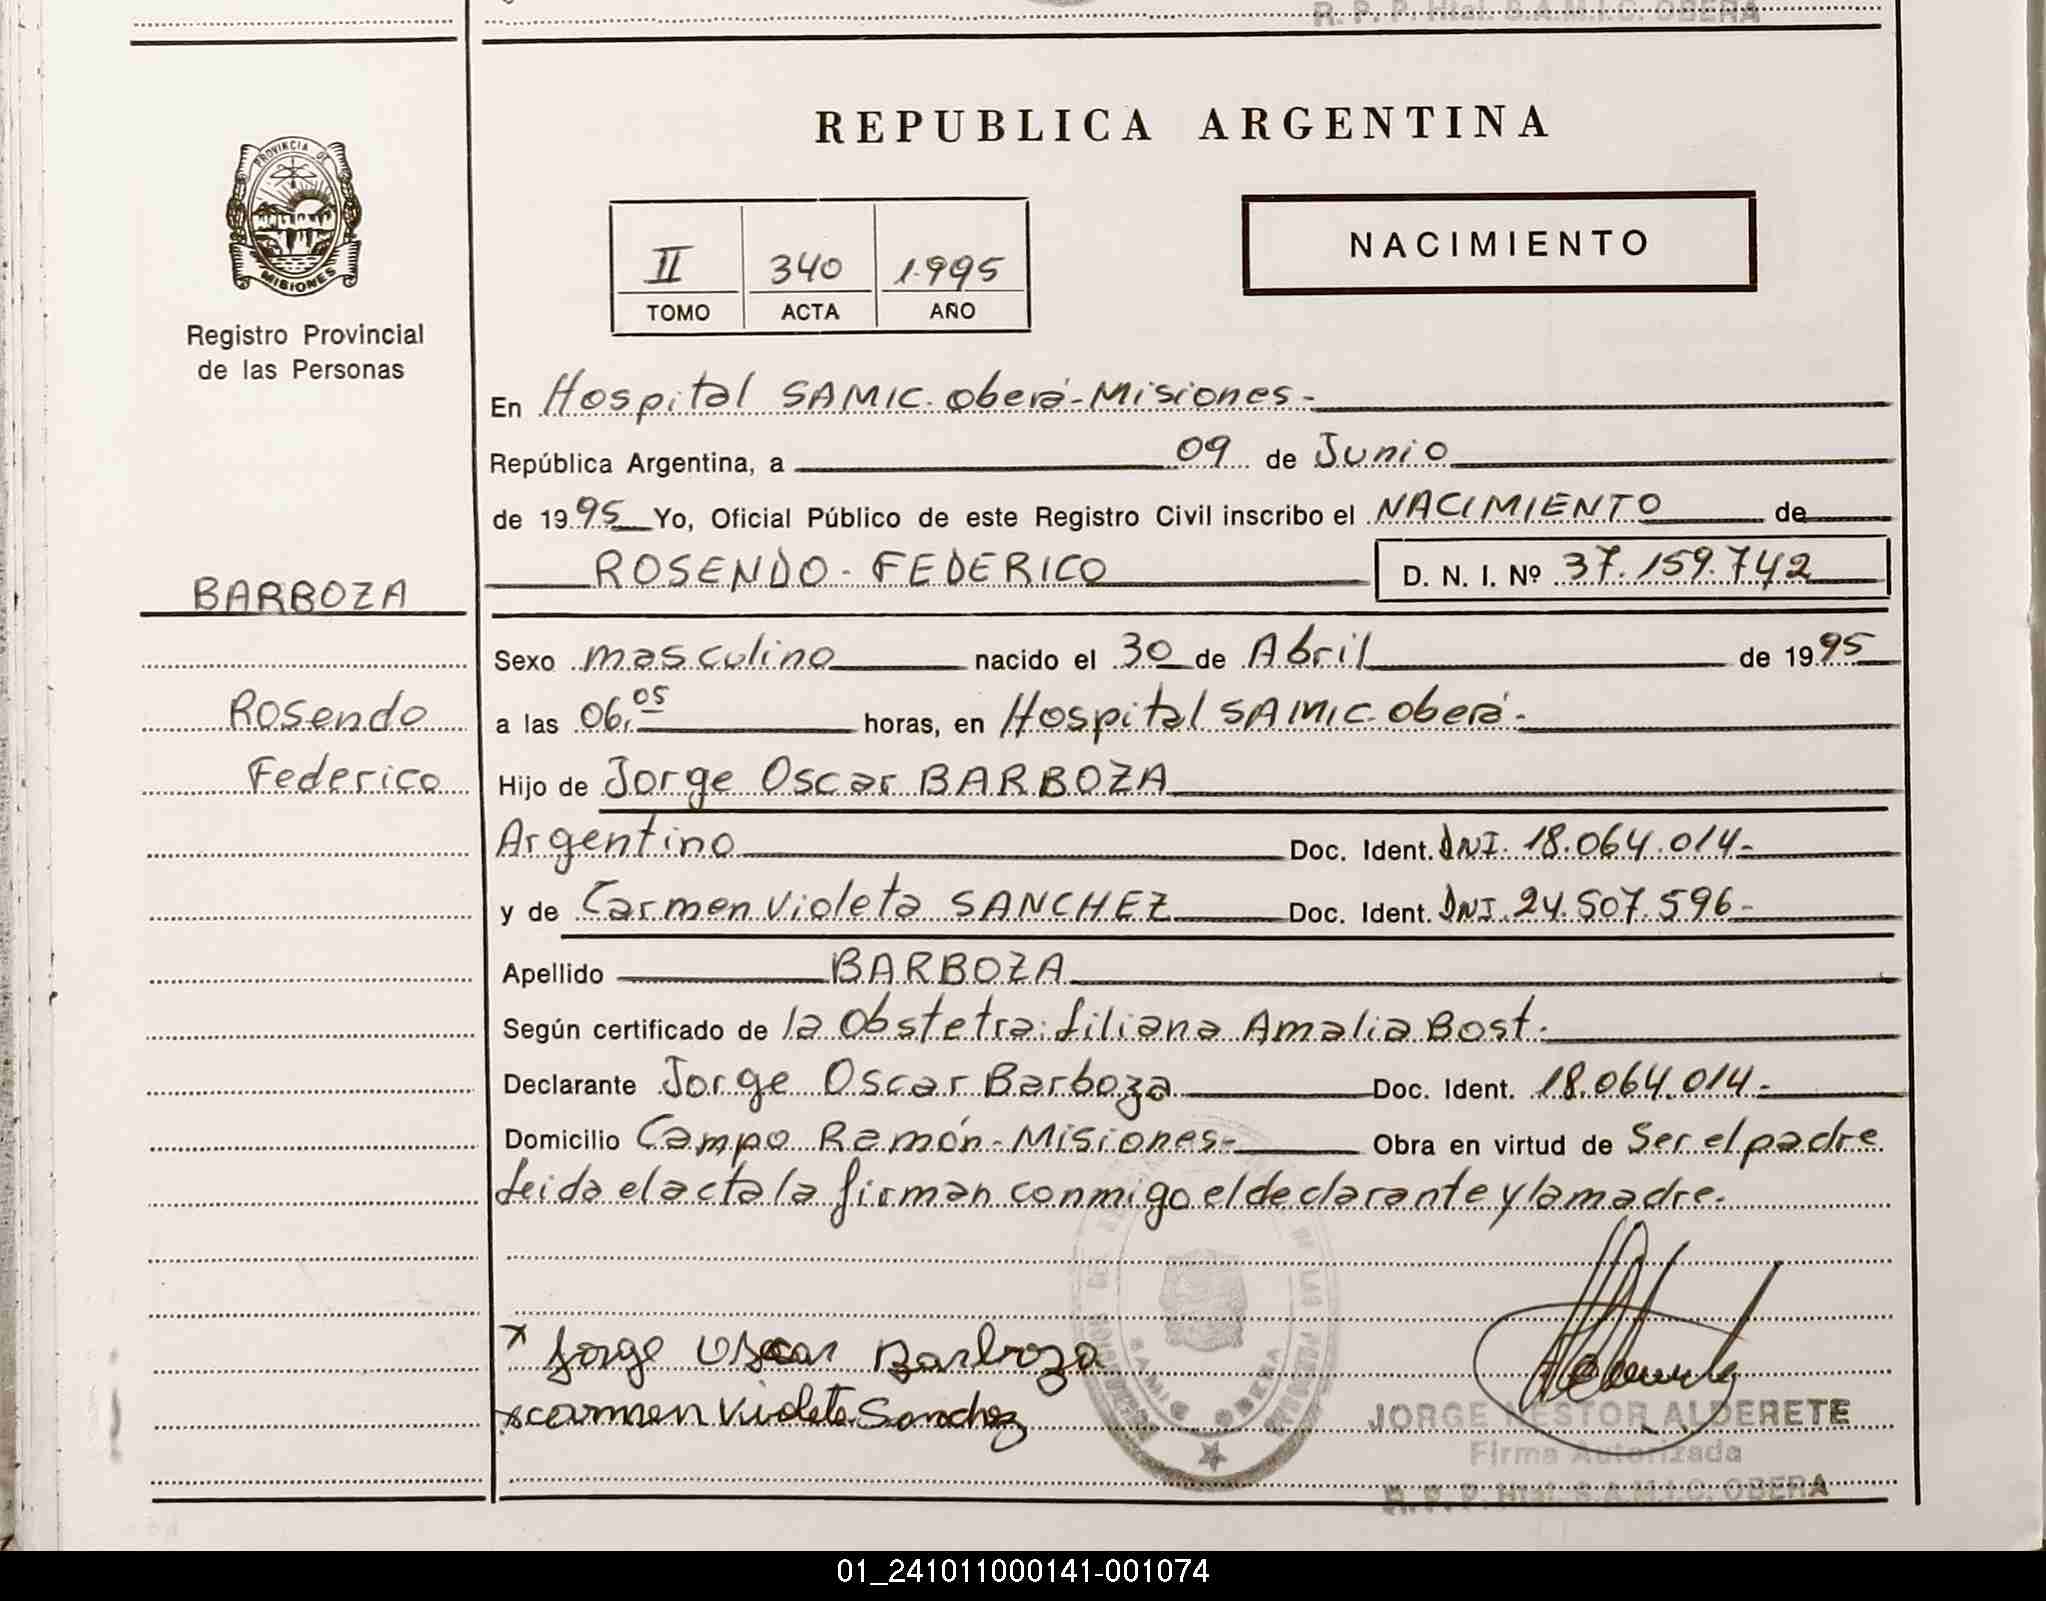 R. P. P. Htal. S.A.M.I.C. OBERA
PROVINCIA DE
MISIONES
Registro Provincial
de las Personas
REPUBLICA ARGENTINA
II 340 1.995
TOMO ACTA AÑO
NACIMIENTO
En Hospital SAMIC. Oberá-Misiones-
República Argentina, a 09 de Junio
de 1995 Yo, Oficial Público de este Registro Civil inscribo el NACIMIENTO de
ROSENDO-FEDERICO D. N. I. Nº 37.159.742
BARBOZA
Sexo masculino nacido el 30 de Abril de 1995
Rosendo
a las 06,05 horas, en Hospital SAMIC. Oberá-
Federico
Hijo de Jorge Oscar BARBOZA
Argentino Doc. Ident. DNI. 18.064.014-
y de Carmen Violeta SANCHEZ Doc. Ident. DNI. 24.507.596-
Apellido BARBOZA
Según certificado de la Obstetra: Liliana Amalia Bost-
Declarante Jorge Oscar Barboza Doc. Ident. 18.064.014-
Domicilio Campo Ramón-Misiones- Obra en virtud de Ser el padre
Leida el acta la firman conmigo el declarante y la madre-
x Jorge Oscar Barboza
x carmen Violeta Sanchez
SAMIC OBERA
JORGE NESTOR ALDERETE
Firma Autorizada
R. P. P. Htal. S.A.M.I.C. OBERA
01_241011000141-001074